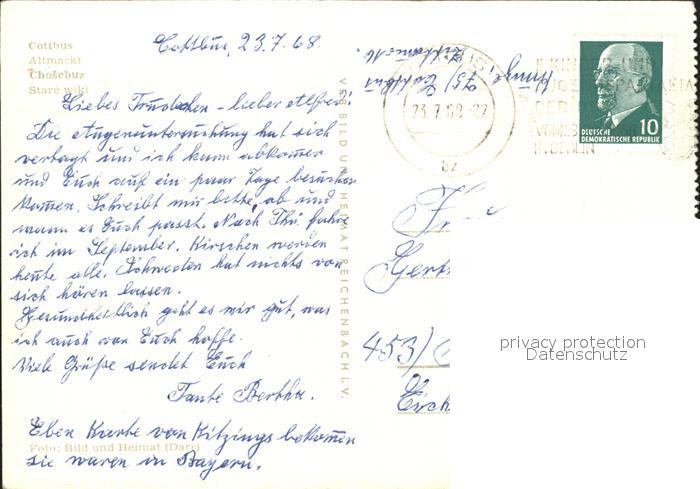 Cottbus
Altmarkt
Chośebuz
Stare wiki
Cottbus, 23.7.68.
Liebes Trudchen - lieber Alfred!
Die Augenuntersuchung hat sich
vertagt und ich kann abkommen
und Euch auf ein paar Tage besuchen
kommen. Schreibt mir bitte, ob und
wann es Euch passt. Nach Thü. fahre
ich im September. Kirschen werden
heute alle. Schweden hat nichts von
sich hören lassen.
Gesundheitlich geht es mir gut, was
ich auch von Euch hoffe.
Viele Grüße sendet Euch
Tante Bertha.
Eben Karte von Kitzings bekommen
sie waren in Bayern.
Foto: Bild und Heimat (Darr)
VEB BILD UND HEIMAT REICHENBACH I. V.
75 Cottbus
23.7.68-22
bz
II. KINDER- UND
JUGENDSPARTAKIADE
DER
VOM
IN BERLIN
DEUTSCHE
DEMOKRATISCHE REPUBLIK
10
453)
privacy protection
Datenschutz